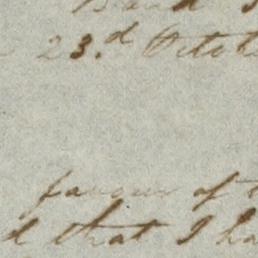 23.d Octo
favour of
d that I ha